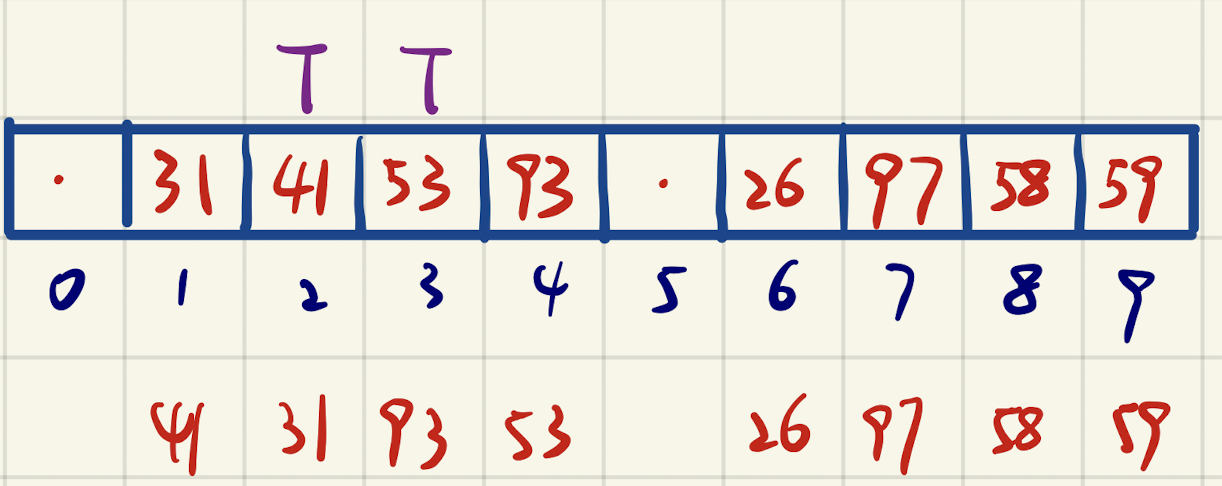 T T
. 31 41 53 93 . 26 97 58 59
0 1 2 3 4 5 6 7 8 9
41 31 93 53 26 97 58 59